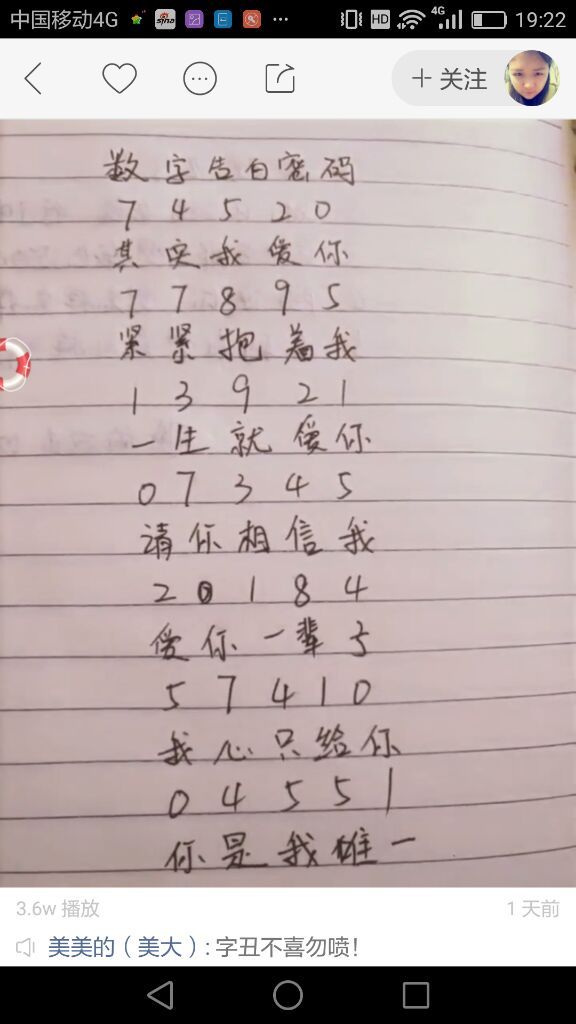 中国移动4G HD 4G 19:22
+ 关注
数字告白密码
7 4 5 2 0
其实我爱你
7 7 8 9 5
紧紧抱着我
1 3 9 2 1
一生就爱你
0 7 3 4 5
请你相信我
2 0 1 8 4
爱你一辈子
5 7 4 1 0
我心只给你
0 4 5 5 1
你是我雄一
3.6w 播放 1 天前
美美的（美大）: 字丑不喜勿喷！